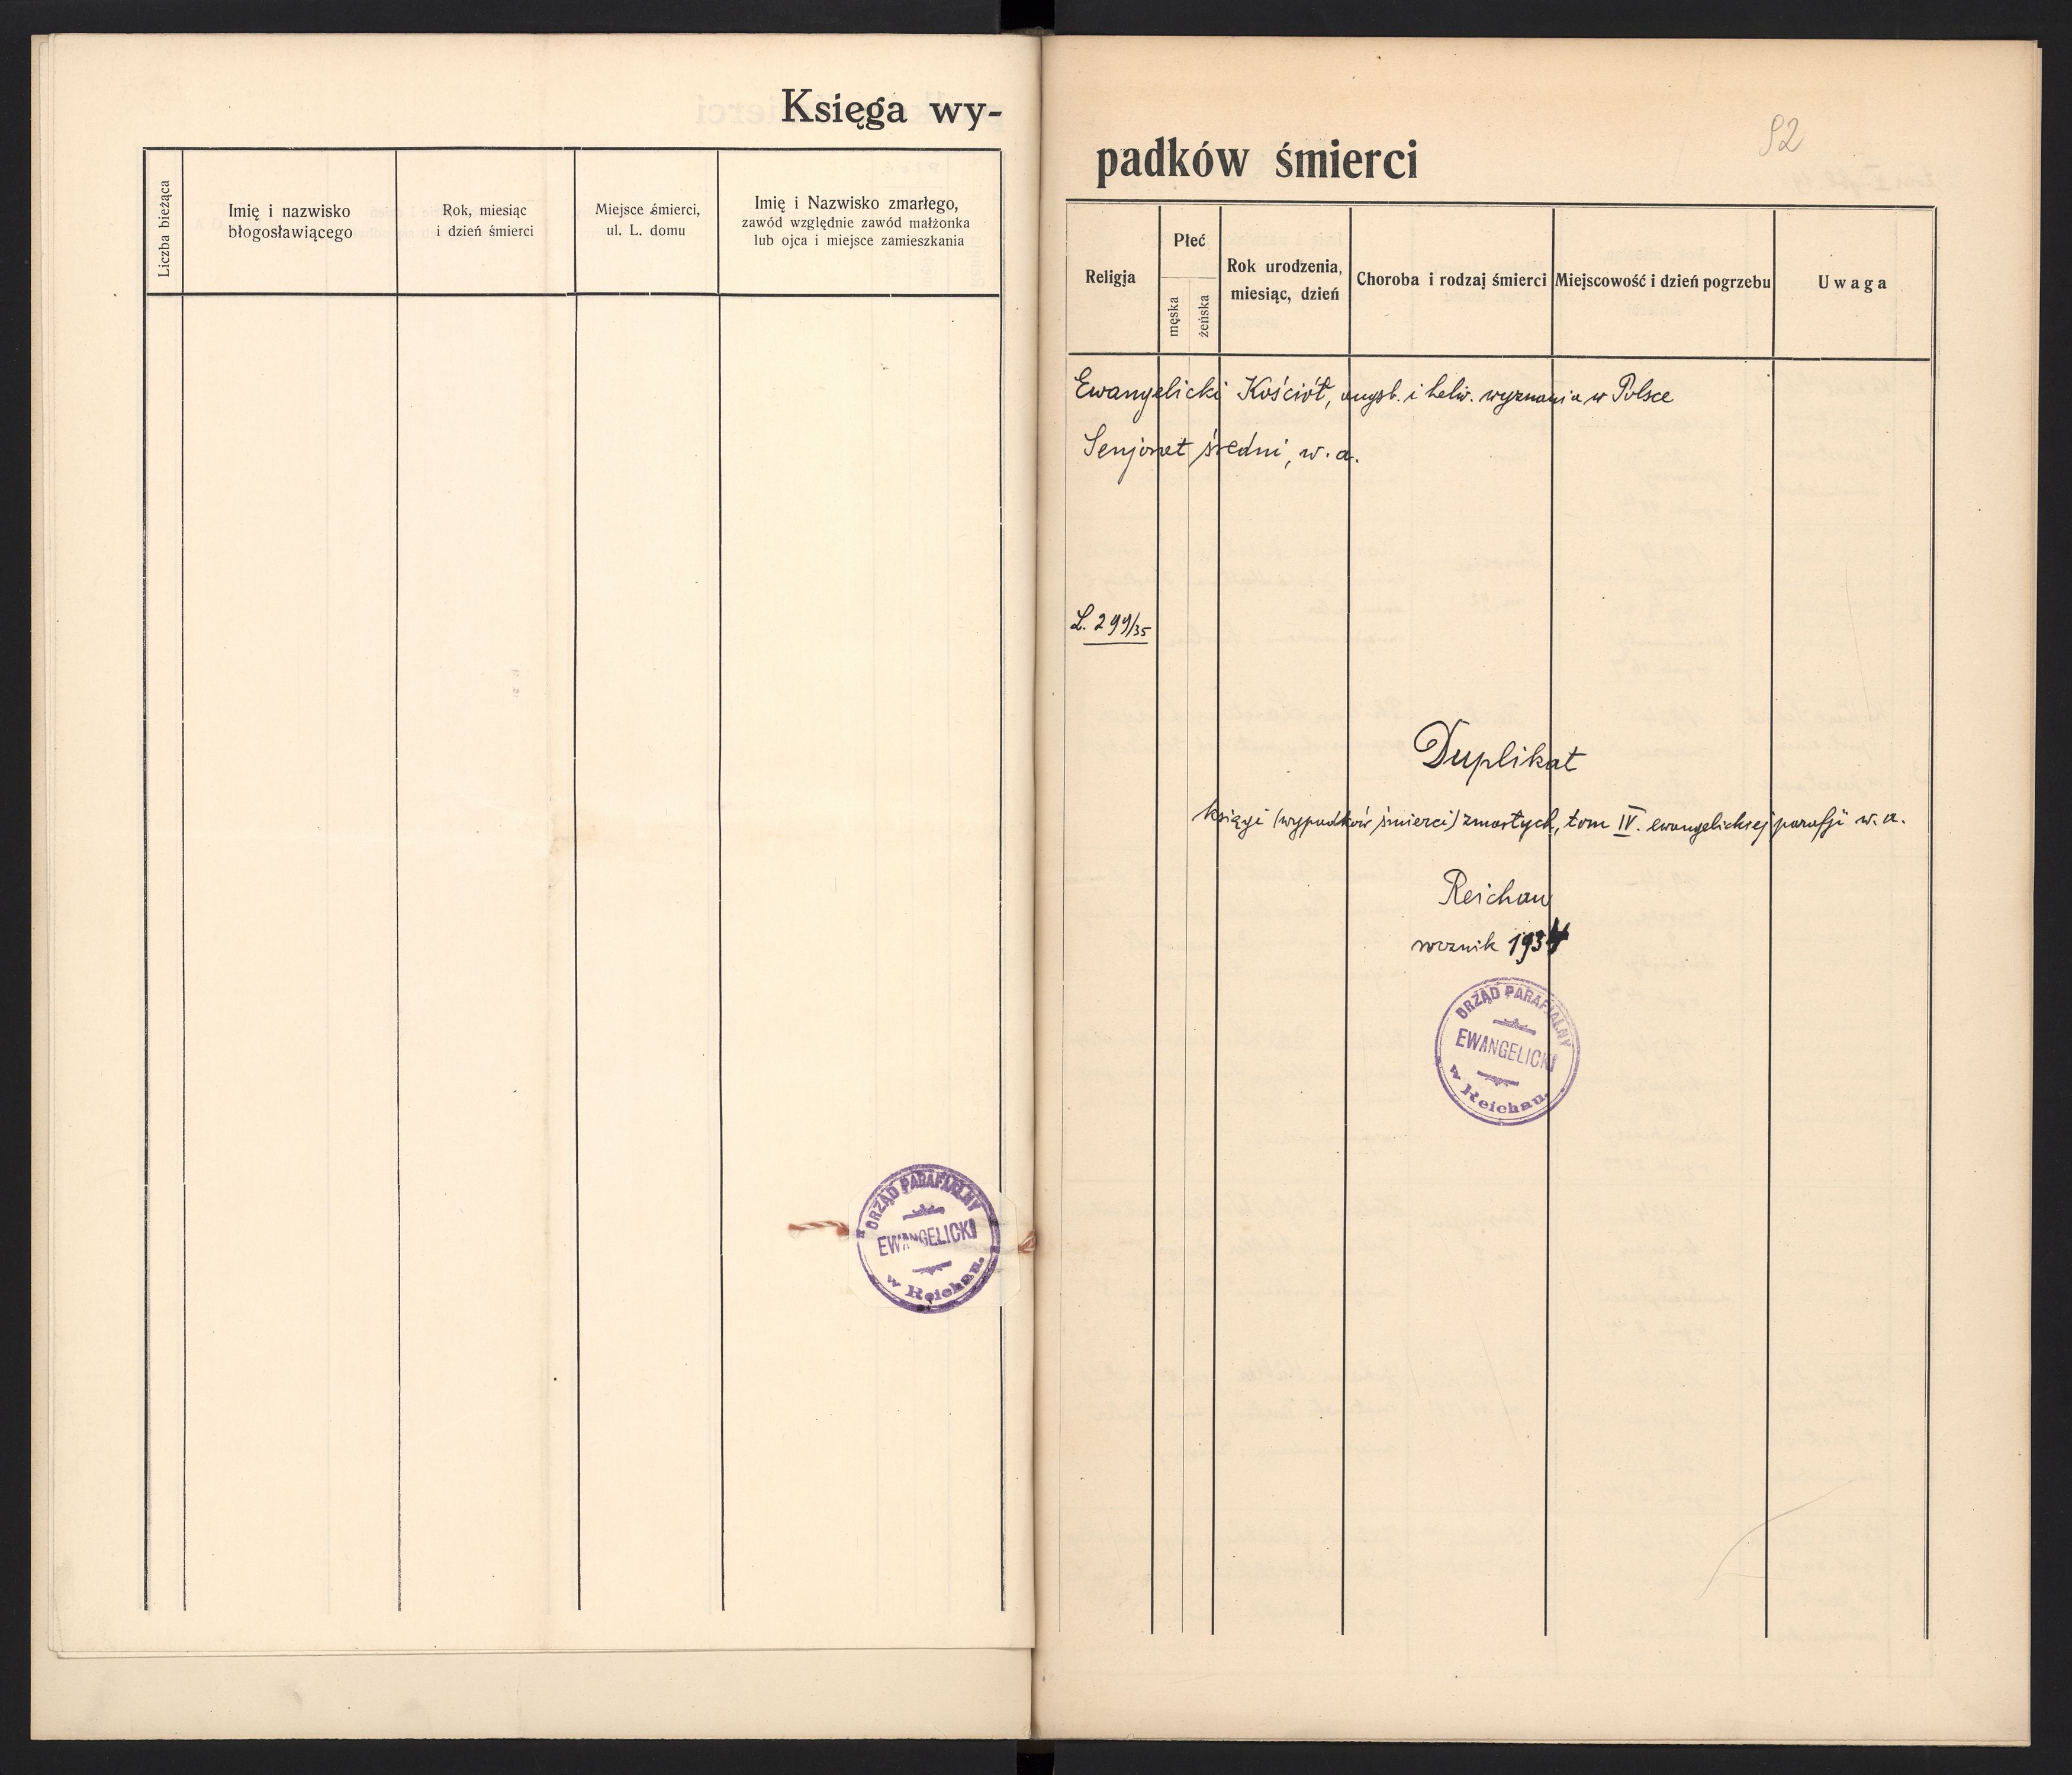 Księga wy-
Liczba bieżąca
Imię i nazwisko
błogosławiącego
Rok, miesiąc
i dzień śmierci
Miejsce śmierci,
ul. L. domu
Imię i Nazwisko zmarłego,
zawód względnie zawód małżonka
lub ojca i miejsce zamieszkania
URZĄD PARAFIALNY
EWANGELICKI
w Reichau.
92
padków śmierci
Religja
Płeć
męska
żeńska
Rok urodzenia,
miesiąc, dzień
Choroba i rodzaj śmierci
Miejscowość i dzień pogrzebu
Uwaga
Ewangelicki Kościół, augsb. i helw. wyznania w Polsce
Senjorat średni, w. a.
L. 299/35
Duplikat
księgi (wypadków śmierci) zmarłych, tom IV. ewangelickiej parafji w. a.
Reichau
rocznik 1934
URZĄD PARAFIALNY
EWANGELICKI
w Reichau.